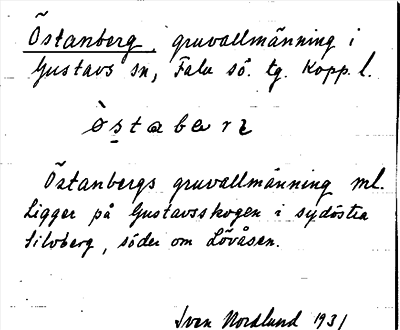 Östanberg, gruvallmänning i
Gustavs sn, Falu sö. tg. Kopp. l.
ò̀stabarɩ
Östanbergs gruvallmänning ml.
Ligger på Gustavsskogen i sydöstra
Silvberg, söder om Lövåsen.
Sven Nordlund 1931